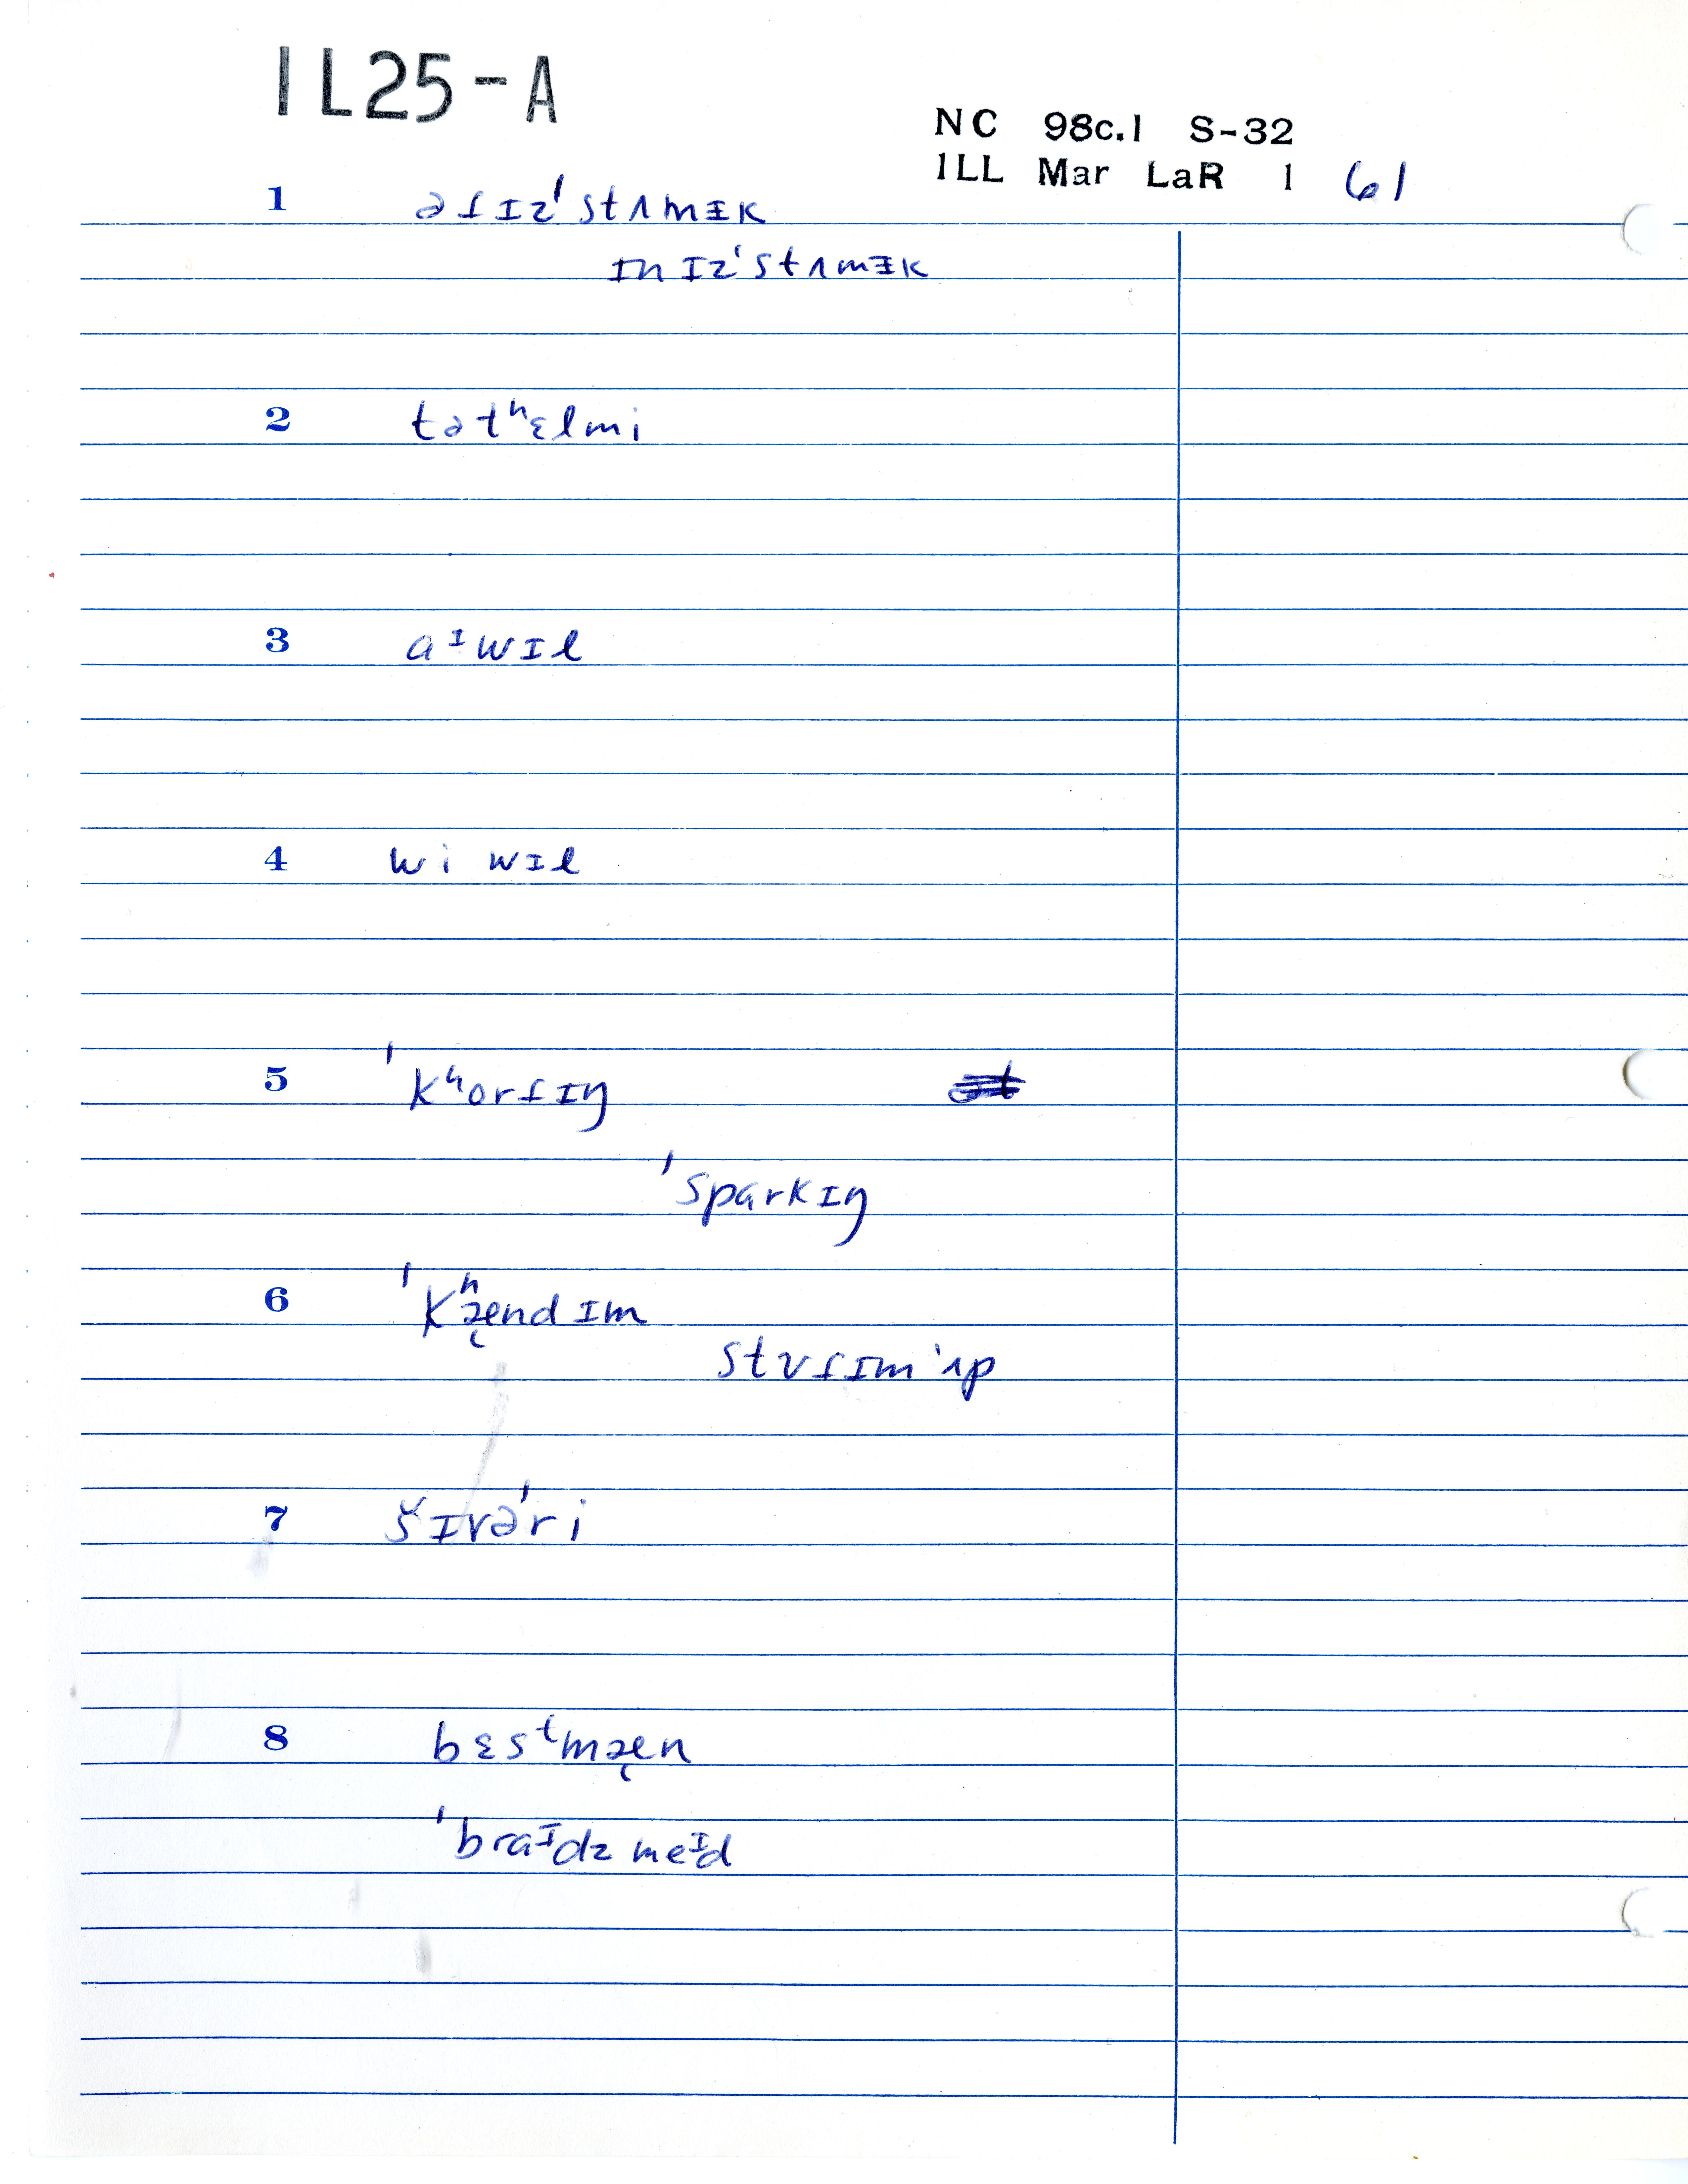 IL25-A
NC 98c.1 S-32
ILL Mar LaR 1 61
1 əfɪzˈstʌmɪk
ɪnɪzˈstʌmɪk
2 tətʰɛlmi
3 aᶦwɪl
4 wi wɪl
5 ˈkʰortɪŋ
ˈsparkɪŋ
6 ˈkʰæ̨ndɪm
stʊdɪmˈʌp
7 šɪvəˈri
8 bɛsᵗmæ̨n
ˈbraᶦdzmeᶦd